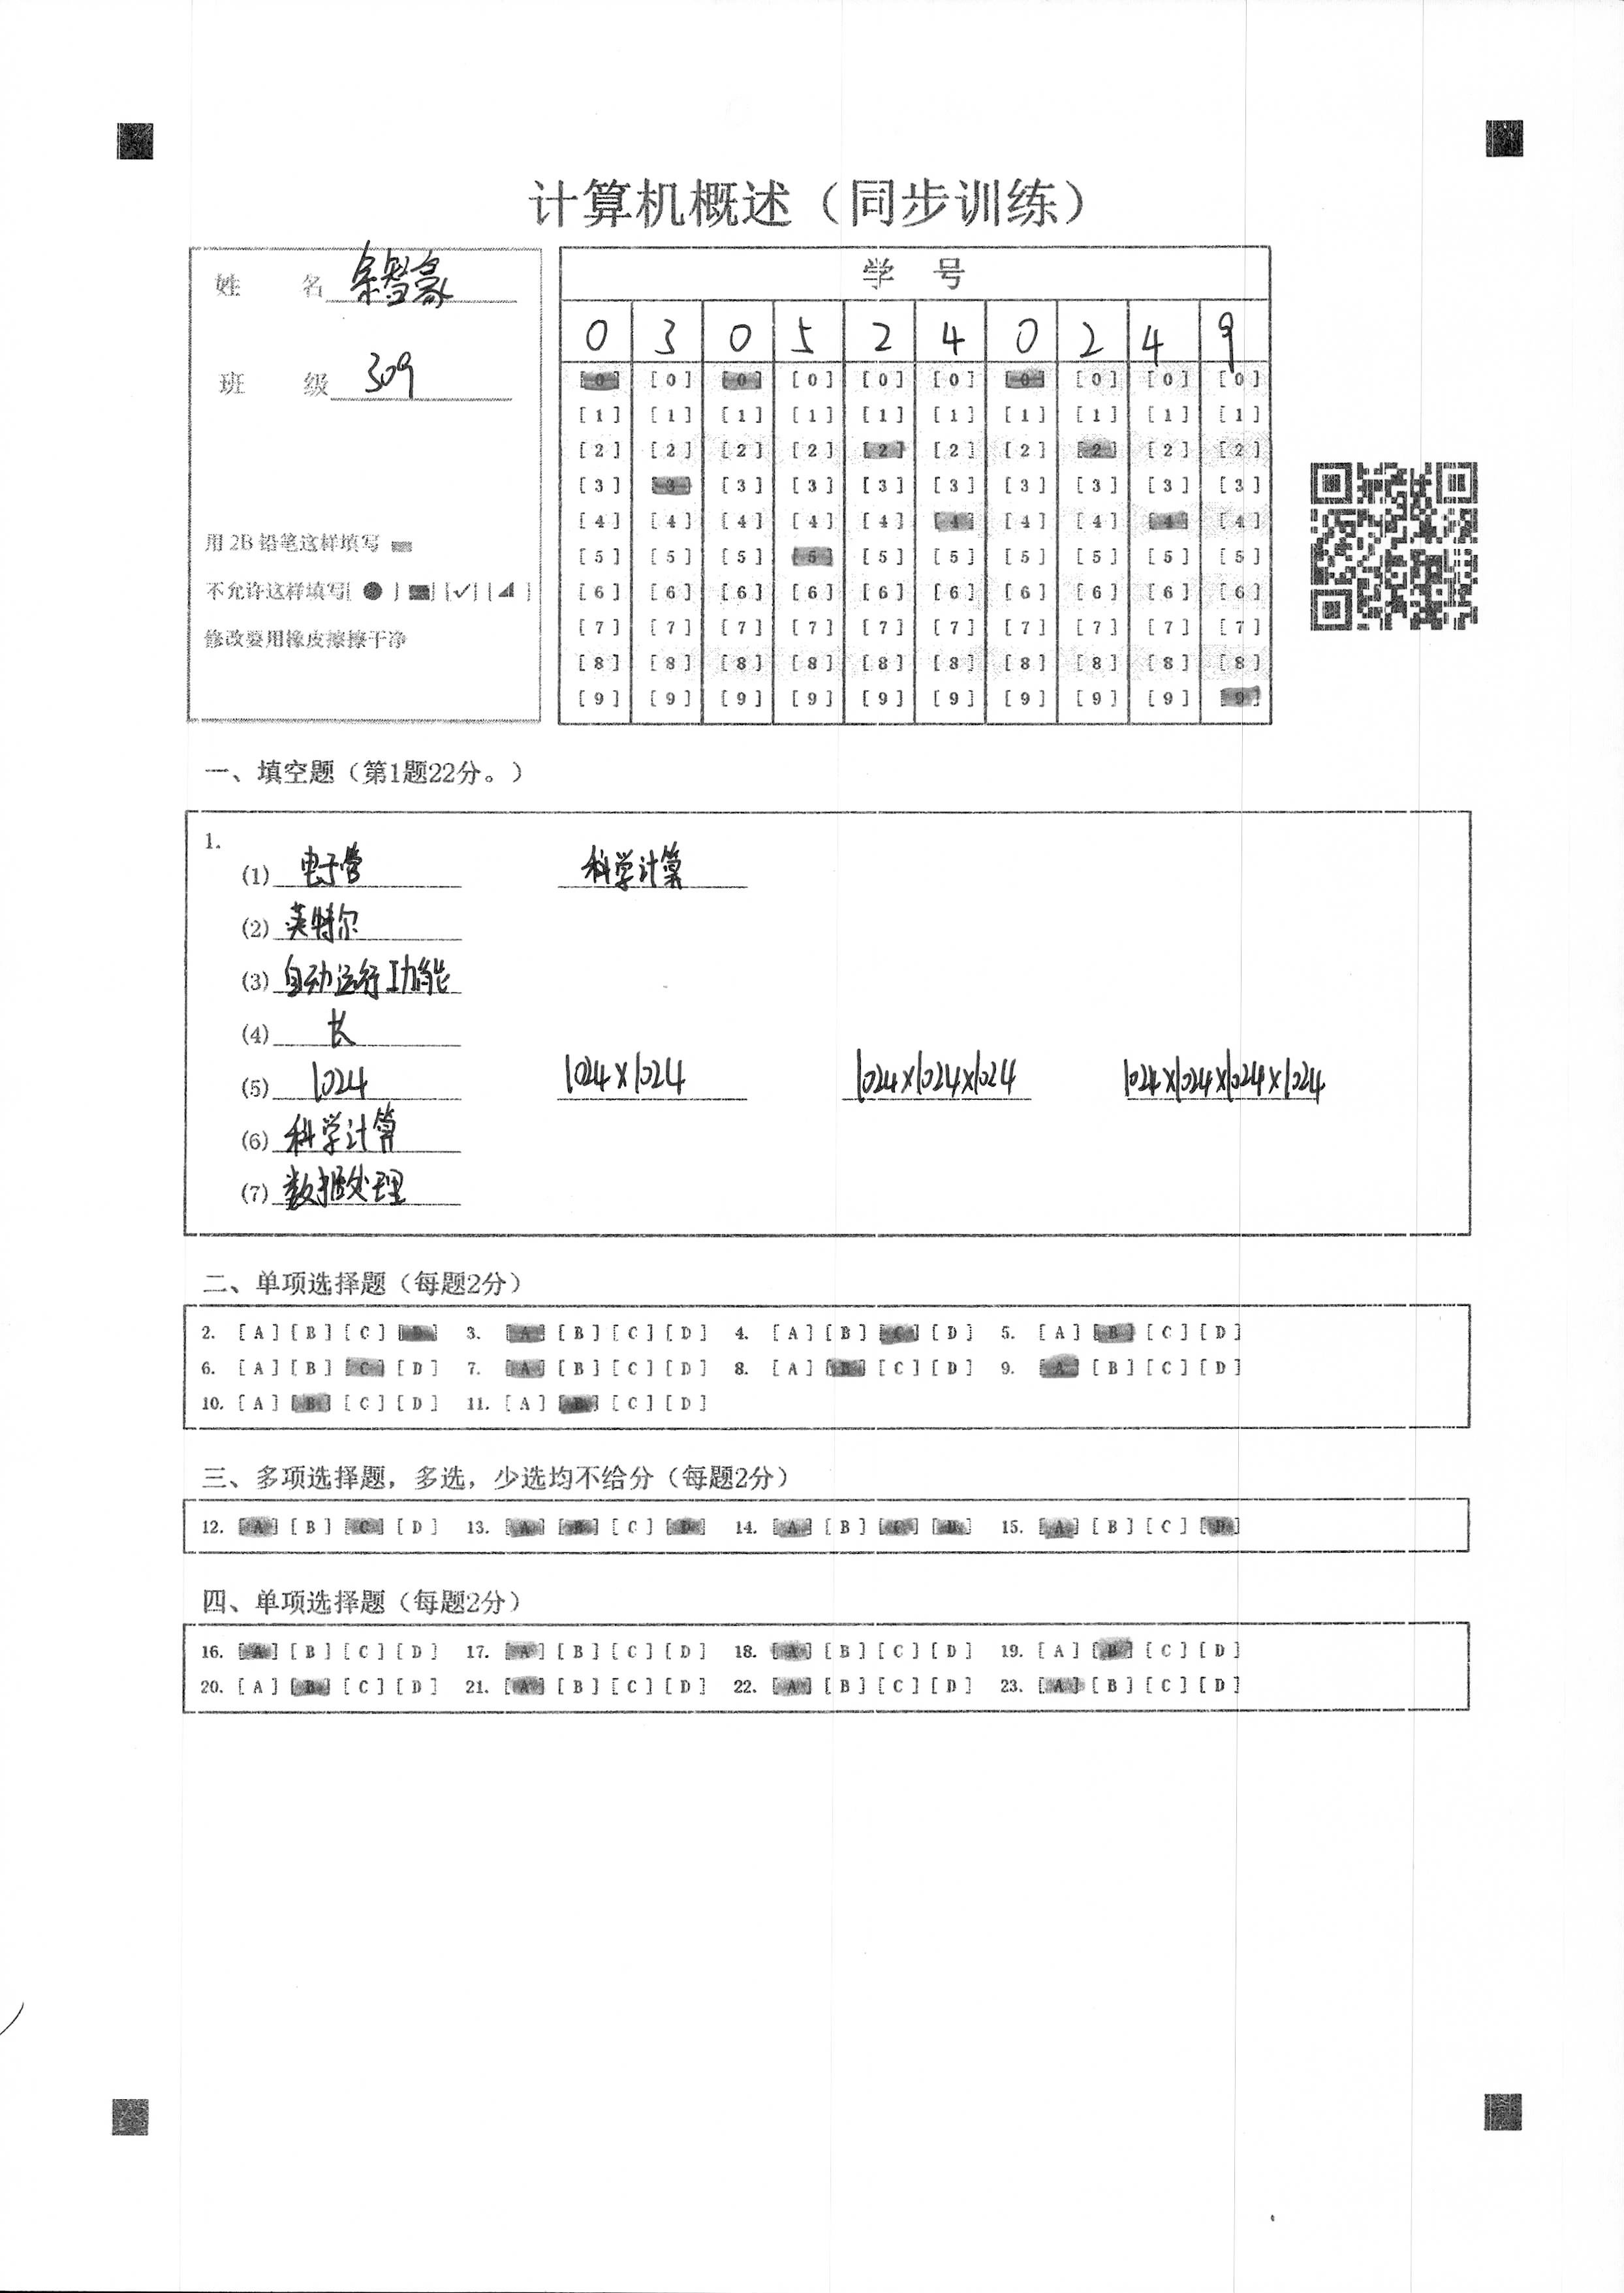 计算机概述（同步训练）
姓 名 余智豪
班 级 309
用 2B 铅笔这样填写
不允许这样填写[ ● ] [■] [✓] [◢ ]
修改要用橡皮擦擦干净
学 号
0 3 0 5 2 4 0 2 4 9
[0] [0] [0] [0] [0] [0] [0] [0] [0] [0]
[1] [1] [1] [1] [1] [1] [1] [1] [1] [1]
[2] [2] [2] [2] [2] [2] [2] [2] [2] [2]
[3] [3] [3] [3] [3] [3] [3] [3] [3] [3]
[4] [4] [4] [4] [4] [4] [4] [4] [4] [4]
[5] [5] [5] [5] [5] [5] [5] [5] [5] [5]
[6] [6] [6] [6] [6] [6] [6] [6] [6] [6]
[7] [7] [7] [7] [7] [7] [7] [7] [7] [7]
[8] [8] [8] [8] [8] [8] [8] [8] [8] [8]
[9] [9] [9] [9] [9] [9] [9] [9] [9] [9]
一、填空题（第1题22分。）
1.
(1) 电子管 科学计算
(2) 英特尔
(3) 自动运行功能
(4) 长
(5) 1024 1024×1024 1024×1024×1024 1024×1024×1024×1024
(6) 科学计算
(7) 数据处理
二、单项选择题（每题2分）
2. [A] [B] [C] [D] 3. [A] [B] [C] [D] 4. [A] [B] [C] [D] 5. [A] [B] [C] [D]
6. [A] [B] [C] [D] 7. [A] [B] [C] [D] 8. [A] [B] [C] [D] 9. [A] [B] [C] [D]
10. [A] [B] [C] [D] 11. [A] [B] [C] [D]
三、多项选择题，多选，少选均不给分（每题2分）
12. [A] [B] [C] [D] 13. [A] [B] [C] [D] 14. [A] [B] [C] [D] 15. [A] [B] [C] [D]
四、单项选择题（每题2分）
16. [A] [B] [C] [D] 17. [A] [B] [C] [D] 18. [A] [B] [C] [D] 19. [A] [B] [C] [D]
20. [A] [B] [C] [D] 21. [A] [B] [C] [D] 22. [A] [B] [C] [D] 23. [A] [B] [C] [D]